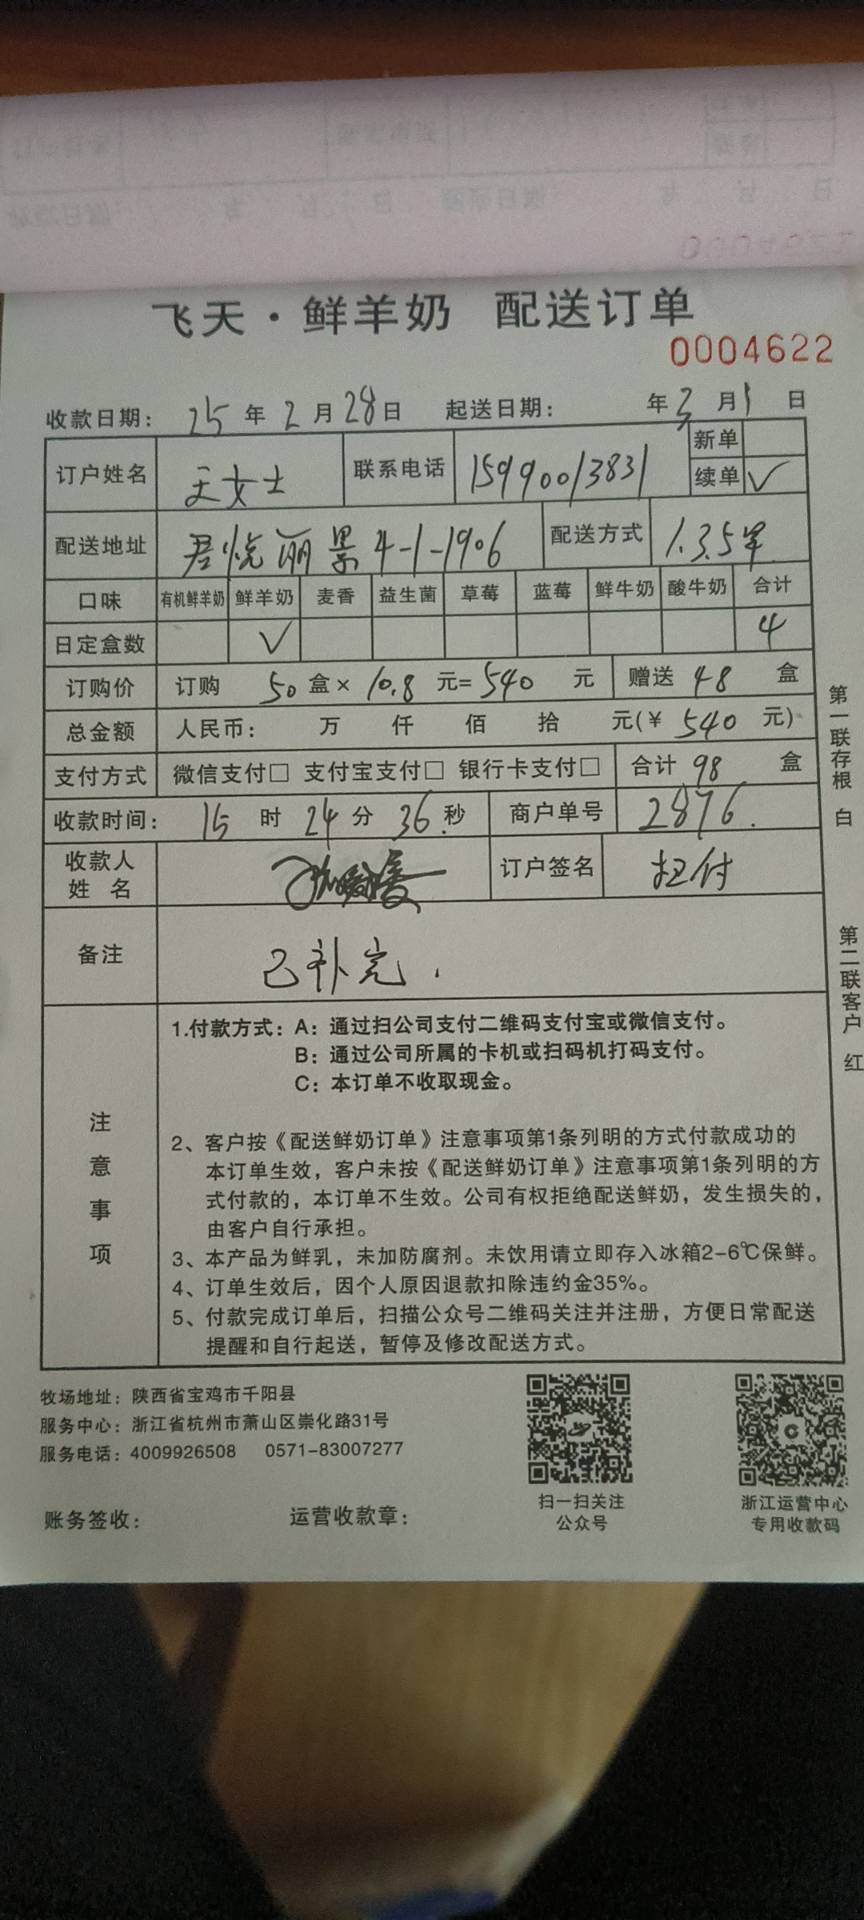 飞天·鲜羊奶 配送订单
0004622
收款日期： 25 年 2 月 28 日 起送日期： 年 3 月 1 日
订户姓名 王女士 联系电话 15990013831 新单
续单 ✓
配送地址 君悦丽景4-1-1906 配送方式 1.3.5早
口味 有机鲜羊奶 鲜羊奶 麦香 益生菌 草莓 蓝莓 鲜牛奶 酸牛奶 合计
日定盒数 ✓ 4
订购价 订购 50 盒× 10.8 元= 540 元 赠送 48 盒
总金额 人民币： 万 仟 佰 拾 元(¥ 540 元)
支付方式 微信支付□ 支付宝支付□ 银行卡支付□ 合计 98 盒
收款时间： 15 时 24 分 36 秒 商户单号 2876.
收款人
姓 名 订户签名 扫付
备注 已补完.
注意事项
1.付款方式：A：通过扫公司支付二维码支付宝或微信支付。
B：通过公司所属的卡机或扫码机打码支付。
C：本订单不收取现金。
2、客户按《配送鲜奶订单》注意事项第1条列明的方式付款成功的
本订单生效，客户未按《配送鲜奶订单》注意事项第1条列明的方
式付款的，本订单不生效。公司有权拒绝配送鲜奶，发生损失的，
由客户自行承担。
3、本产品为鲜乳，未加防腐剂。未饮用请立即存入冰箱2-6℃保鲜。
4、订单生效后，因个人原因退款扣除违约金35%。
5、付款完成订单后，扫描公众号二维码关注并注册，方便日常配送
提醒和自行起送，暂停及修改配送方式。
第一联存根 白
第二联客户 红
牧场地址：陕西省宝鸡市千阳县
服务中心：浙江省杭州市萧山区崇化路31号
服务电话：4009926508 0571-83007277
扫一扫关注
公众号
浙江运营中心
专用收款码
账务签收： 运营收款章：